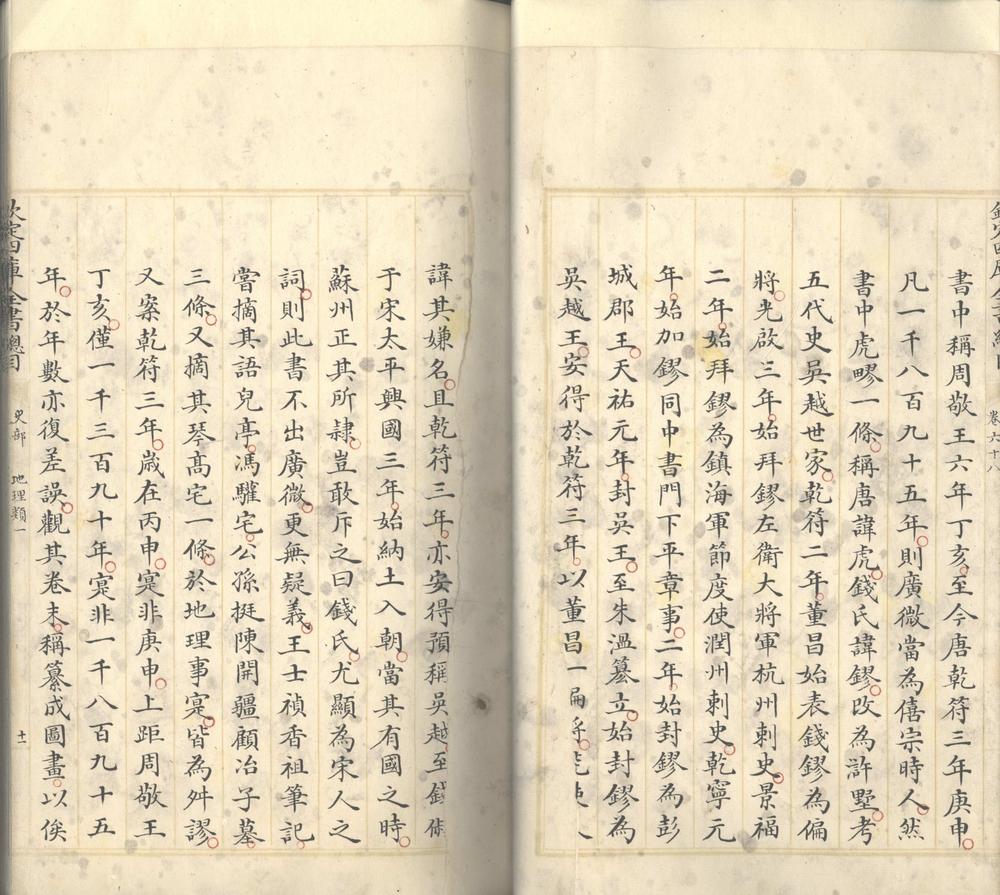 書中稱周敬王六年丁亥至今唐乾符三年庚申
凡一千八百九十五年則廣微當為僖宗時人然
書中虎疁一條稱唐諱虎錢氏諱鏐改為許墅考
五代史吳越世家乾符二年董昌始表錢鏐為偏
將光啟三年始拜鏐左衛大將軍杭州刺史景福
二年始拜鏐為鎮海軍節度使潤州刺史乾寧元
年始加鏐同中書門下平章事二年始封鏐為彭
城郡王天祐元年封吳王至朱溫篡立始封鏐為
吳越王安得於乾符三年以董昌一
諱其嫌名且乾符三年亦安得預稱吳越至錢俶
于宋太平興國三年始納土入朝當其有國之時
蘇州正其所隷豈敢斥之曰錢氏尤顯為宋人之
詞則此書不出廣微更無疑義王士禎香祖筆記
嘗摘其語兒亭馮驩宅公孫挺陳開疆顧冶子墓
三條又摘其琴髙宅一條於地理事寔皆為舛謬
又案乾符三年嵗在丙申寔非庚申上距周敬王
丁亥僅一千三百九十年寔非一千八百九十五
年於年數亦復差誤觀其卷末稱纂成圖畫以俟
欽定四庫全書總目
史部 地理類一
十一
卷六十八